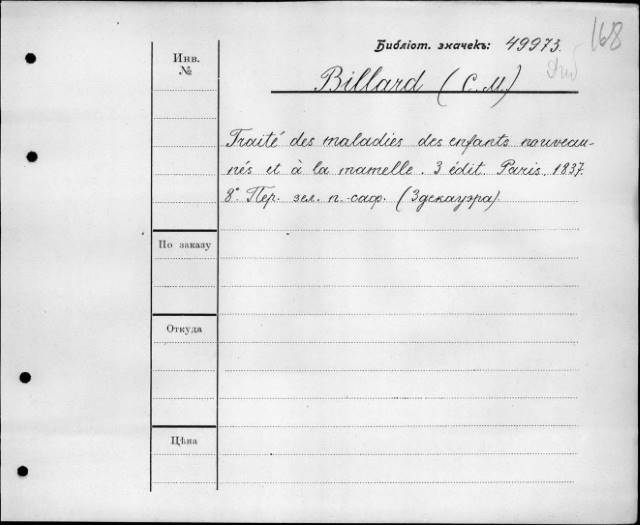 168
Библіот. значекъ: 49973.
Инв.
№
Billard (C. M.)
Traité des maladies des enfants nouveau-
nés et à la mamelle. 3 édit. Paris. 1837.
8° Пер. зел. п.-саф. (Здекауэра)
По заказу
Откуда
Цѣна